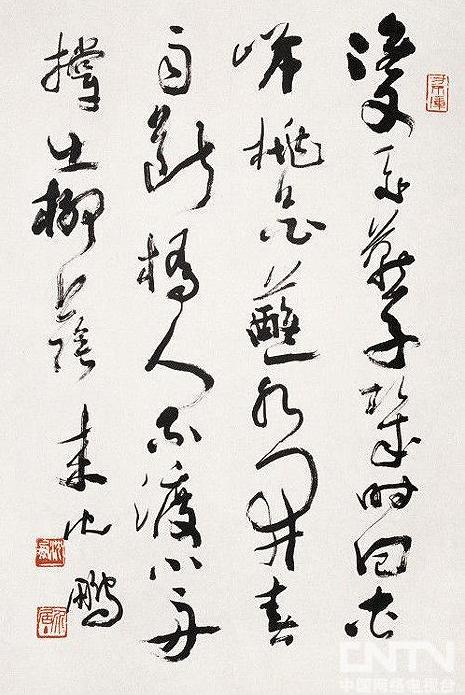 雙飛燕子幾時回夾
岸桃花蘸水開春
雨斷橋人不渡小舟
撐出柳陰來 沈鵬
CNTV
中国网络电视台